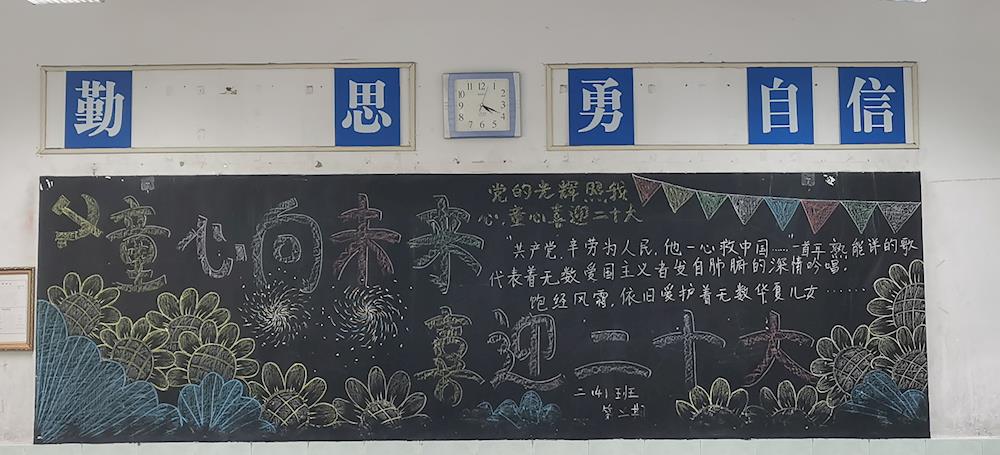 勤 思 勇 自 信
12 1 2 3 4 5 6 7 8 9 10 11
党的光辉照我
心,童心喜迎二十大
童心向未来
"共产党,辛劳为人民,他一心救中国……"一首耳熟能详的歌
代表着无数爱国主义者发自肺腑的深情吟唱。
饱经风霜,依旧爱护着无数华夏儿女………
喜迎二十大
二(4)班
第二期